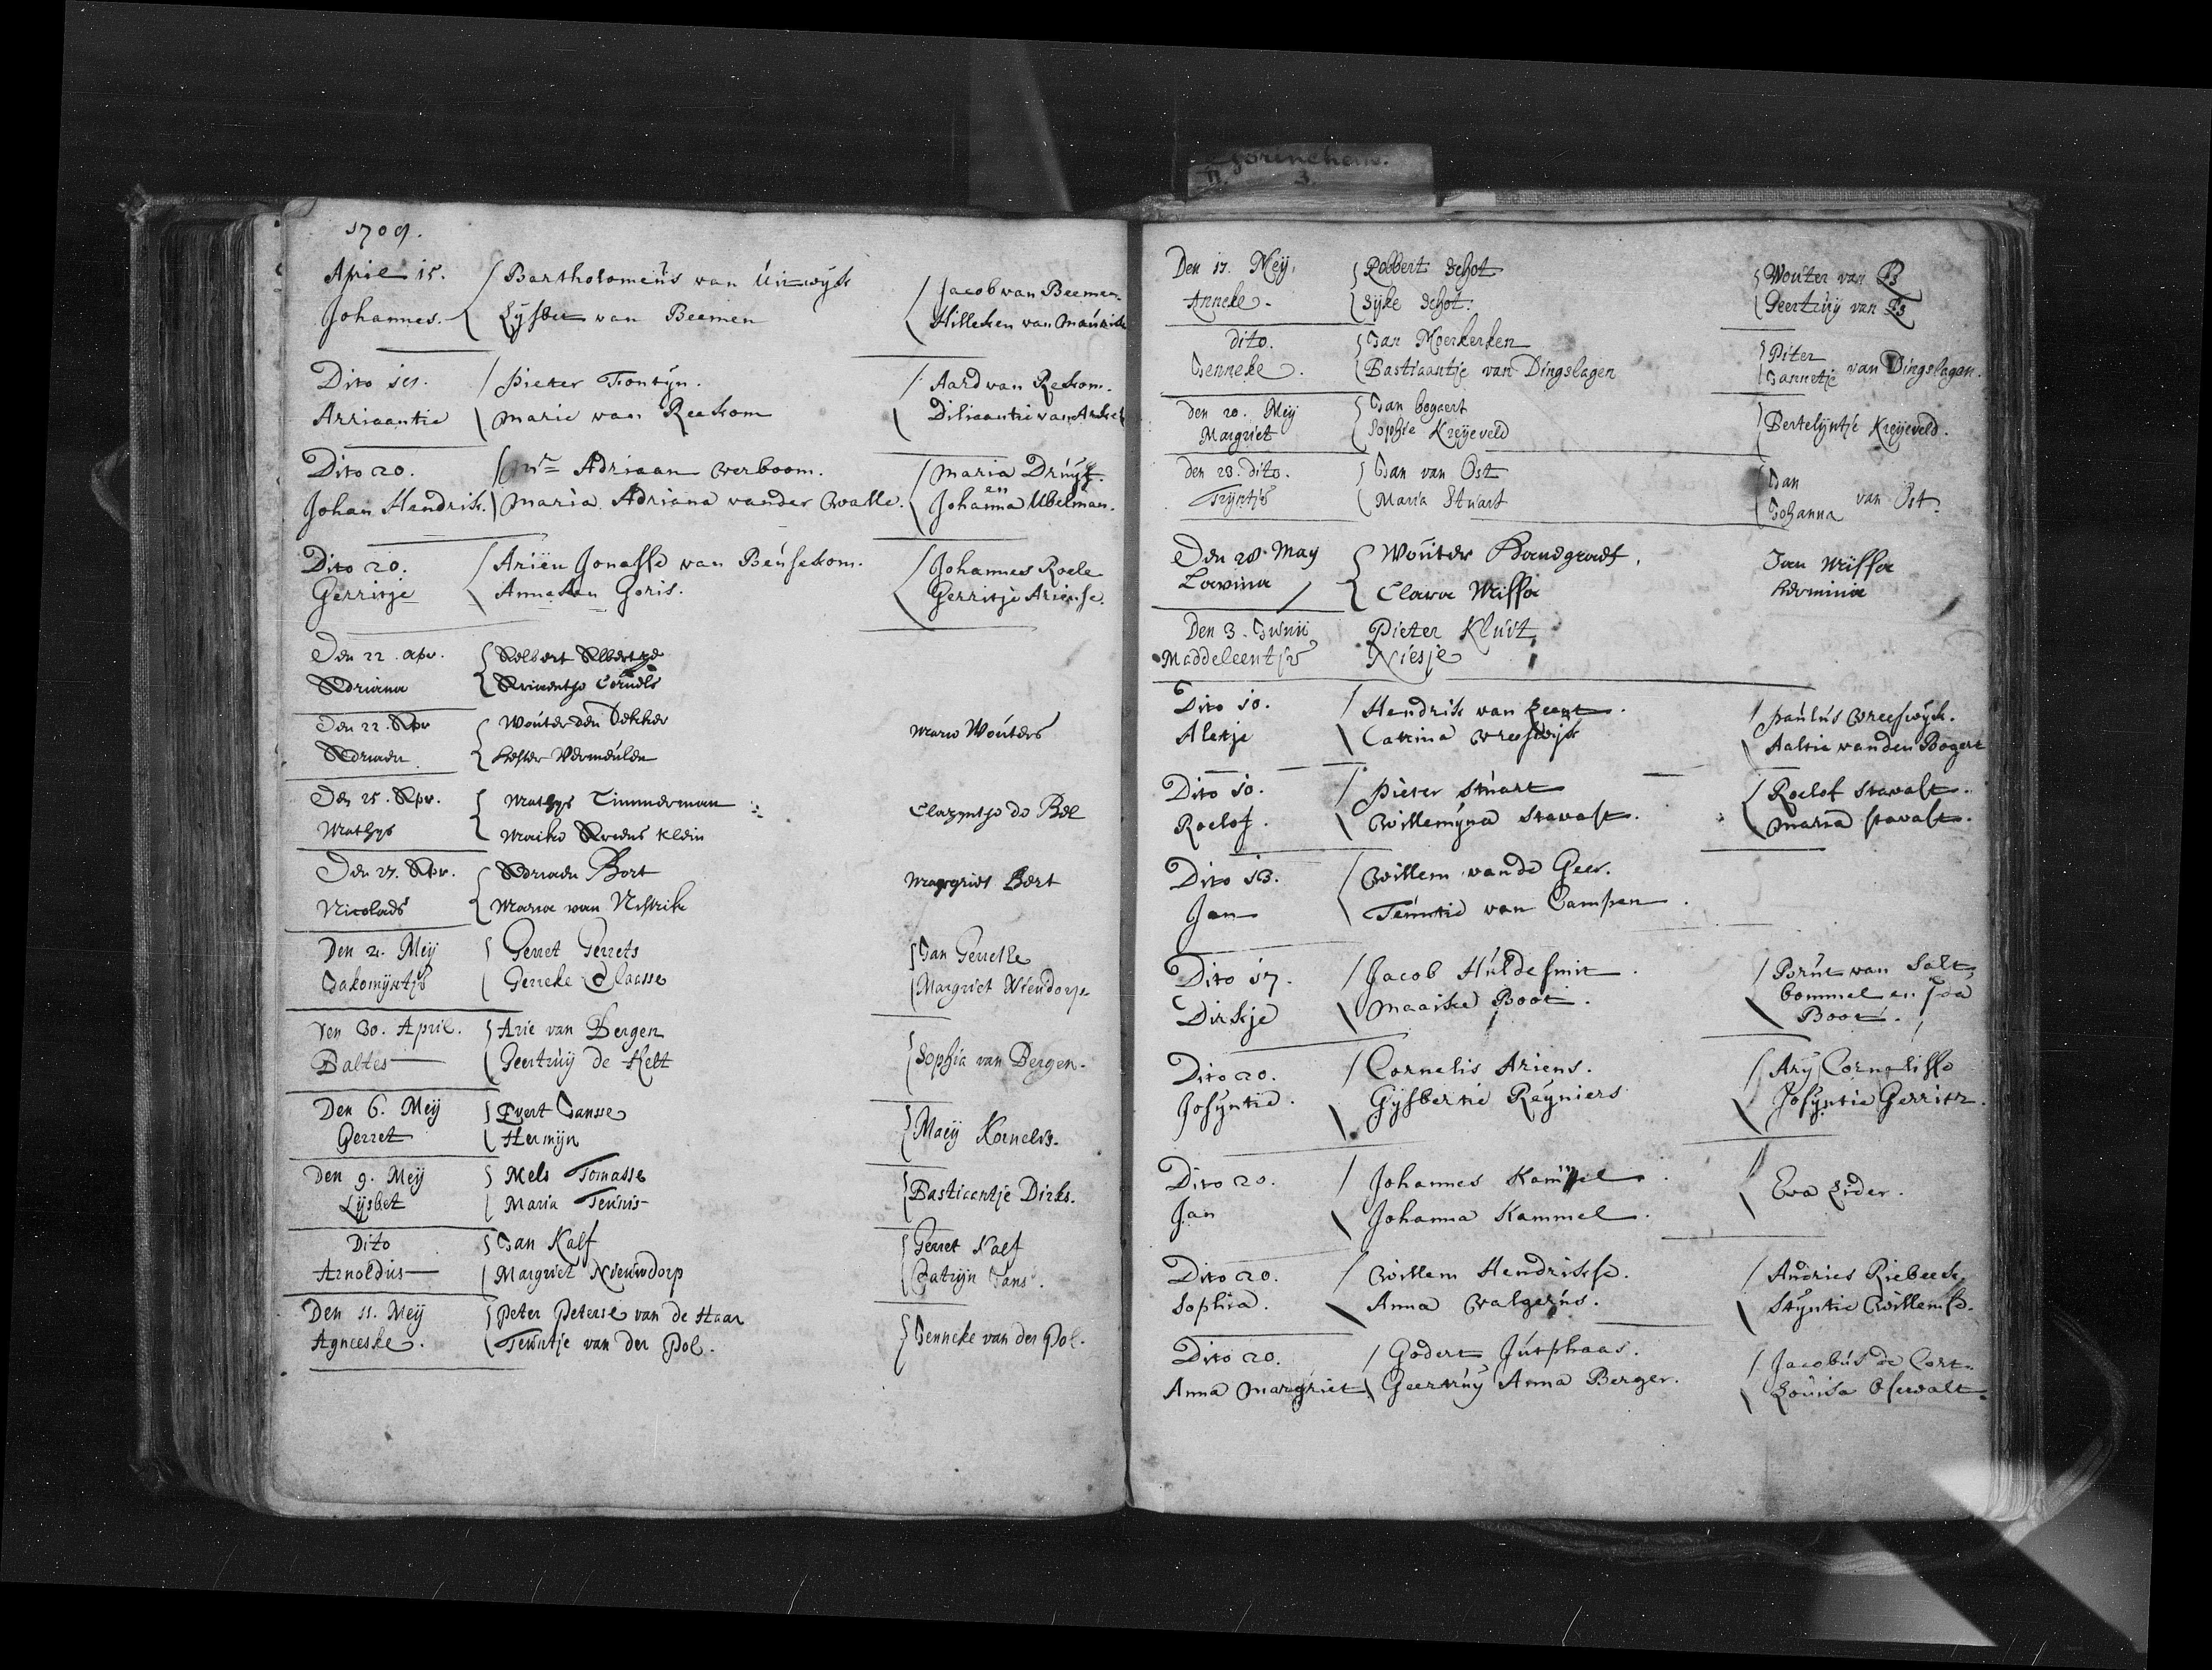 Gorinchem.
II 3.
1709.
April 15. Bartholomeus van Uitwyk Jacob van Beemen.
Johannes. Lysbet van Beemen Hilleken van Maurik
Dito 19. Pieter Fontyn. Aard van Rekom.
Arriaantie Marie van Reekom Diliaantie van Arkel
Dito 20. Mr. Adriaan Verboom. Maria Druyf.
en
Johan Hendrik. Maria Adriana vander Walle. Johanna Ubelman.
Dito 20. Ariën Jonasse van Beusekom. Johannes Roele
Gerritje Anneken Goris. Gerritje Ariense.
Den 22. apr. Aelbert Albertze
Adriana Ariaentje Cornels
Den 22. Apr Wouter den Dekker Maria Wouters
Adriaen Hester Vermeulen
Den 25. Apr. Mathys Timmerman Clazyntje de Bel
Mathys Maike Ariens Klein
Den 27. Apr. Adriaen Bort Margriet Bort
Nicolaes Maria van
Den 2. Meij Gerret Gerrets Jan Gerretse
Jakomijntje Gerreke Claasse Margriet Niendorp
Den 30. April. Arie van Bergen Sophia van Bergen.
Baltes Geertruij de Helt
Den 6. Meij Evert Jansse Maeij Kornelis.
Gerret Hermijn
Den 9. Meij Mels Tomasse Bastiaantje Dirks.
Lijsbet Maria Teunis
Dito Jan Kalf Gerret Kalf
Arnoldus Margriet Nieuwdorp Catrijn Jans.
Den 11. Meij Peter Peterse van de Haar Jenneke van der Pol.
Agneeske. Teuntje van der Pol.
Den 17. Meij. Robbert Schot Wouter van
Anneke. Sijke Schot. Geertruij van
dito. Jan Moerkerken Piter
Jenneke. Bastiaantje van Dingslagen Jannetje van Dingslagen.
den 20. Meij Jan bogaert Bertelijntje Kreijeveld.
Margriet Sophie Kreijeveld
den 23. dito. Jan van Ost Jan
Trijntje Maria Stuart Johanna van Ost.
Den 28. May Wouter Jan Wissa
Lavina Clara Wissa Hermina
Den 3. Junii Pieter Kluit
Maddeleentje Niesje
Dito 10. Hendrik van Paulus Vreeswyck.
Aletje Catrina Vreeswijk Aaltie van den Bogert
Dito 10. Pieter Stuart Roelof Stavast.
Roelof. Willemyna Stavast. Maria Stavast.
Dito 13. Willem van de Geer.
Jan Teuntie van Campen.
Dito 17. Jacob Huldesmit. Brut van Salt
Dirkje Maaike Boot. bommel en Ida
Boot.
Dito 20. Cornelis Ariens. Ary Cornelisse
Josyntie. Gysbertie Reyniers Josyntie Gerritz.
Dito 20. Johannes Kammel. Eva Lider.
Jan Johanna Kammel.
Dito 20. Willem Hendrikse. Andries Riebeek.
Sophia. Anna Walgerus. Styntie Willemse.
Dito 20. Godert Jutphaas. Jacobus de Cort.
Anna Margriet. Geertruy Anna Berger. Louisa Oserwalt.